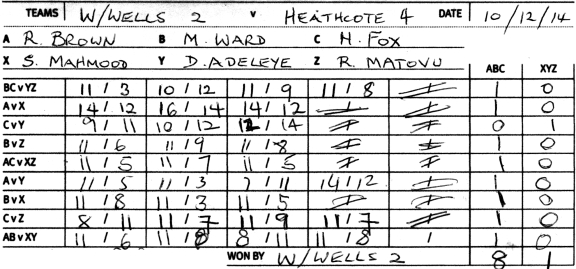 TEAMS W/WELLS 2 V HEATHCOTE 4 DATE 10/12/14
A R. BROWN B M. WARD C H. FOX
X S. MAHMOOD Y D. ADELEYE Z R. MATOVU ABC XYZ
BCvYZ 11/3 10/12 11/9 11/8 1 0
AvX 14/12 16/14 14/12 1 0
CvY 9/11 10/12 12/14 0 1
BvZ 11/6 11/9 11/8 1 0
ACvXZ 11/5 11/7 11/5 1 0
AvY 11/5 11/3 /11 14/12 1 0
BvX 11/8 11/3 11/5 1 0
CvZ 8/11 11/7 11/9 11/7 1 0
ABvXY 11/6 11/8 8/11 11/8 / 1 0
WON BY W/WELLS 2 8 1